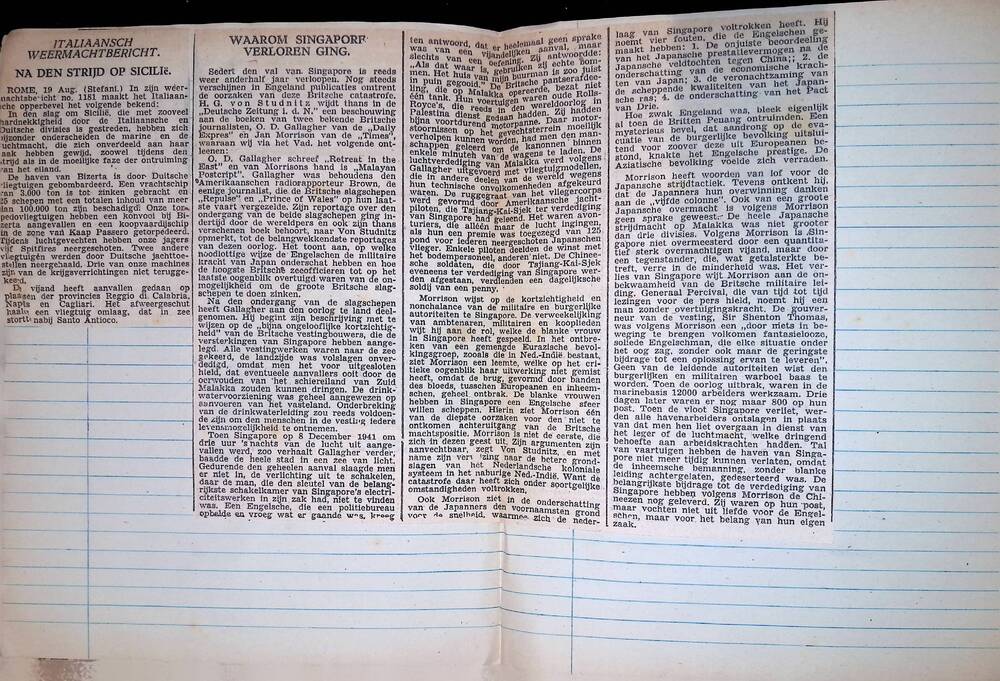 ITALIAANSCH
WEERMACHTBERICHT.
NA DEN STRIJD OP SICILIë.
ROME, 19 Aug. (Stefani.) In zijn weer-
machtsbericht no. 1181 maakt het Italiaan-
sche opperbevel het volgende bekend:
In den slag om Sicilië, met zooveel
hardnekkigheid door de Italiaansche en
Duitsche divisies gestreden, hebben zich
bijzonder onderscheiden de marine en de
luchtmacht, die zich onverdeeld aan haar
taak hebben gewijd, zoowel tijdens den
strijd als in de moeilijke faze der ontruiming
van het eiland.
De haven van Bizerta is door Duitsche
vliegtuigen gebombardeerd. Een vrachtschip
van 3.000 ton is tot zinken gebracht en
25 schepen met een totalen inhoud van meer
dan 100.000 ton zijn beschadigd. Onze tor-
pedovliegtuigen hebben een konvooi bij Bi-
zerta aangevallen en een koopvaardijschip
in de zone van Kaap Passero getorpedeerd.
Tijdens luchtgevechten hebben onze jagers
vijf Spitfires neergeschoten. Twee andere
vliegtuigen werden door Duitsche jachttoe-
stellen neergehaald. Drie van onze machines
zijn van de krijgsverrichtingen niet terugge-
keerd.
De vijand heeft aanvallen gedaan op
plaatsen der provincies Reggio di Calabria,
Napis en Cagliari. Het afweergeschut
haalde een vliegtuig omlaag, dat in zee
stortte nabij Santo Antioco.
WAAROM SINGAPORE
VERLOREN GING.
Sedert den val van Singapore is reeds
meer anderhalf jaar verloopen. Nog steeds
verschijnen in England publicaties omtrent
de oorzaken van deze Britsche catastrofe.
H. G. von Studnitz wijdt thans in de
„Deutsche Zeitung i. d. N." een beschouwing
aan de boeken van twee bekende Britsche
journalisten, O. D. Gallagher van de „Daily
Expres" en Jan Morrison van de „Times",
waaraan wij via het Vad. het volgende ont-
leenen:
O. D. Gallagher schreef „Retreat in the
East" en van Morrisons hand is „Malayan
Postcript". Gallagher was behoudens den
Amerikaanschen radiorapporteur Brown, de
eenige journalist, die de Britsche slagschepen
„Repulse" en „Prince of Wales" op hun laat-
ste vaart vergezelde. Zijn reportage over den
ondergang van de beide slagschepen ging in-
dertijd door de wereldpers en ook zijn thans
verschenen boek behoort, naar Von Studnitz
opmerkt, tot de belangwekkendste reportages
van dezen oorlog. Het toont aan, op welke
noodlottige wijze de Engelschen de militaire
kracht van Japan onderschat hebben en hoe
de hoogste Britsche zeeofficieren tot op het
laatste oogenblik overtuigd waren van de on-
mogelijkheid om de groote Britsche slag-
schepen te doen zinken.
Na den ondergang van de slagschepen
heeft Gallagher aan den oorlog te land deel-
genomen. Hij begint zijn beschrijving met te
wijzen op de „bijna ongelooflijke kortzichtig-
heid" van de Britsche vestingbouwers, die de
versterkingen van Singapore hebben aange-
legd. Alle vestingwerken waren naar de zee
gekeerd, de landzijde was volslagen onver-
dedigd, omdat men het voor uitgesloten
hield, dat eventueele aanvallers ooit door de
oerwouden van 'het schiereiland van Zuid
Malakka zouden kunnen dringen. De drink-
watervoorziening was geheel aangewezen op
aanvoeren van het vasteland. Onderbreking
van de drinkwaterleiding zou reeds voldoen-
de zijn om den menschen in de vesting iedere
levensmogelijkheid te ontnemen.
Toen Singapore op 8 December 1941 om
drie uur 's nachts van de lucht uit aange-
vallen werd, zoo verhaalt Gallagher verder,
baadde de heele stad in een zee van licht.
Gedurende den geheelen aanval slaagde men
er niet in, de verlichting uit te schakelen,
daar de man, die den sleutel van de belang-
rijkste schakelkamer van Singapore's electri-
citeitswerken in zijn zak had, niet te vinden
was. Een Engelsche, die een politiebureau
opbelde en vroeg wat er gaande was, kreeg
ten antwoord, dat er heelemaal geen sprake
was van een vijandelijken aanval, maar
slechts van een oefening. Zij antwoordde:
„Als dat waar is, gebruiken zij echte bom-
men. Het huis van mijn buurman is zoo juist
in puin gegooid." De Britsche pantserafdee-
ling, die op Malakka opereerde, bezat niet
één tank. Hun voertuigen waren oude Rolls-
Royce's, die reeds in den wereldoorlog in
Palestina dienst gedaan hadden. Zij hadden
bijna voortdurend motorpanne. Daar motor-
stoornissen op het gevechtsterrein moeilijk
verholpen konden worden, had men den man-
schappen geleerd om de kanonnen binnen
enkele minuten van de wagens te laden. De
luchtverdediging van Malakka werd volgens
Gallagher uitgevoerd met vliegtuigmodellen,
die in andere deelen van de wereld wegens
hun technische onvolkomenheden afgekeurd
waren. De ruggegraat van het vliegercorps
werd gevormd door Amerikaansche jacht-
piloten, die Tsjiang-Kai-Sjek ter verdediging
van Singapore had geleend. Het waren avon-
turiers, die alléén maar de lucht ingingen,
als hun een premie was toegezegd van 125
pond voor iederen neergeschoten Japanschen
vlieger. Enkele piloten deelden de winst met
het bodempersoneel, anderen niet. De Chinee-
sche soldaten, die door Tsjiang-Kai-Sjek
eveneens ter verdediging van Singapore wer-
den afgestaan, verdienden een dagelijksche
soldij van een penny.
Morrison wijst op de kortzichtigheid en
nonchalance van de militaire en burgerlijke
autoriteiten te Singapore. De verweekelijking
van ambtenaren, militairen en kooplieden
wijt hij aan de rol, welke de blanke vrouw
in Singapore heeft gespeeld. In het ontbre-
ken van een gemengde Eurazische bevol-
kingsgroep, zooals die in Ned.-Indië bestaat,
ziet Morrison een leemte, welke op het cri-
tieke oogenblik haar uitwerking niet gemist
heeft, omdat de brug, gevormd door banden
des bloeds, tusschen Europeanen en inheem-
schen, geheel ontbrak. De blanke vrouwen
hebben in Singapore een Engelsche sfeer
willen scheppen. Hierin ziet Morrison één
van de diepste oorzaken voor den niet te
ontkomen achteruitgang van de Britsche
machtspositie. Morrison is niet de eerste, die
zich in dezen geest uit. Zijn argumenten zijn
aanvechtbaar, zegt Von Studnitz, en met
name zijn verwijzing naar de betere grond-
slagen van het Nederlandsche koloniale
systeem in het naburige Ned.-Indië. Want de
catastrofe daar heeft zich onder soortgelijke
omstandigheden voltrokken.
Ook Morrison ziet in de onderschatting
van de Japanners den voornaamsten grond
voor de snelheid, waarmee zich de neder-
laag van Singapore voltrokken heeft. Hij
noemt vier fouten, die de Engelschen ge-
maakt hebben: 1. De onjuiste beoordeeling
van het Japansche prestatievermogen na de
Japansche veldtochten tegen China;; 2. de
onderschatting van de economische krach-
ten van Japan; 3. de veronachtzaming van
de scheppende kwaliteiten van het Japan-
sche ras; 4. de onderschatting van het Pact
van Drie.
Hoe zwak Engeland was, bleek eigenlijk
al toen de Britten Penang ontruimden. Een
mysterieus bevel, dat aandrong op de eva-
cuatie van de burgerlijke bevolking uitslui-
tend voor zoover deze uit Europeanen be-
stond, knakte het Engelsche prestige. De
Aziatische bevolking voelde zich verraden.
Morrison heeft woorden van lof voor de
Japansche strijdtactiek. Tevens ontkent hij,
dat de Japanners hun overwinning danken
aan de „vijfde colonne". Ook van een groote
Japansche overmacht is volgens Morrison
geen sprake geweest. De heele Japansche
strijdmacht op Malakka was niet grooter
dan drie divisies. Volgens Morrison is Sin-
gapore niet overmeesterd door een quantita-
tief sterk overmachtigen vijand, maar door
een tegenstander, die, wat getalsterkte be-
treft, verre in de minderheid was. Het ver-
lies van Singapore wijt Morrison aan de on-
bekwaamheid van de Britsche militaire lei-
ding. Generaal Percival, die van tijd tot tijd
lezingen voor de pers hield, noemt hij een
man zonder overtuigingskracht. De gouver-
neur van de vesting, Sir Shenton Thomas,
was volgens Morrison een „door niets in be-
weging te brengen volkomen fantasielooze,
soliede Engelschman, die elke situatie onder
het oog zag, zonder ook maar de geringste
bijdrage tot een oplossing ervan te leveren".
Geen van de leidende autoriteiten wist den
burgerlijken en militairen warboel baas te
worden. Toen de oorlog uitbrak, waren in de
marinebasis 12000 arbeiders werkzaam. Drie
dagen later waren er nog maar 800 op hun
post. Toen de vloot Singapore verliet, wer-
den alle havenarbeiders ontslagen in plaats
van dat men hen liet overgaan in dienst van
het leger of de luchtmacht, welke dringend
behoefte aan arbeidskrachten hadden. Tal
van vaartuigen hebben de haven van Singa-
pore niet meer tijdig kunnen verlaten, omdat
de inheemsche bemanning, zonder blanke
leiding achtergelaten, gedeserteerd was. De
belangrijkste bijdrage tot de verdediging van
Singapore hebben volgens Morrison de Chi-
neezen nog geleverd. Zij waren op hun post,
maar vochten niet uit liefde voor de Engel-
schen, maar voor het belang van hun eigen
zaak.